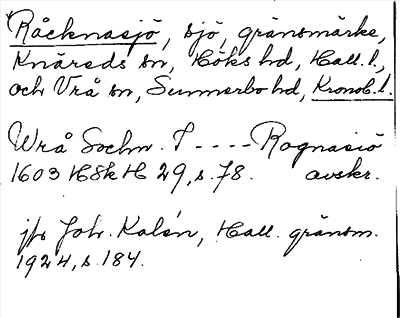 Råcknasjö, sjö, gränsmärke,
Knäreds sn, Höks hd, Hall. l.,
och Vrå sn, Sunnerbo hd, Kronob. l.
Wrå Sochn. T - - - - Rognasiö
1603 HSH H 29, s. 78. avskr.
jfr Joh. Kalén, Hall. gränsm.
1924, s 184.